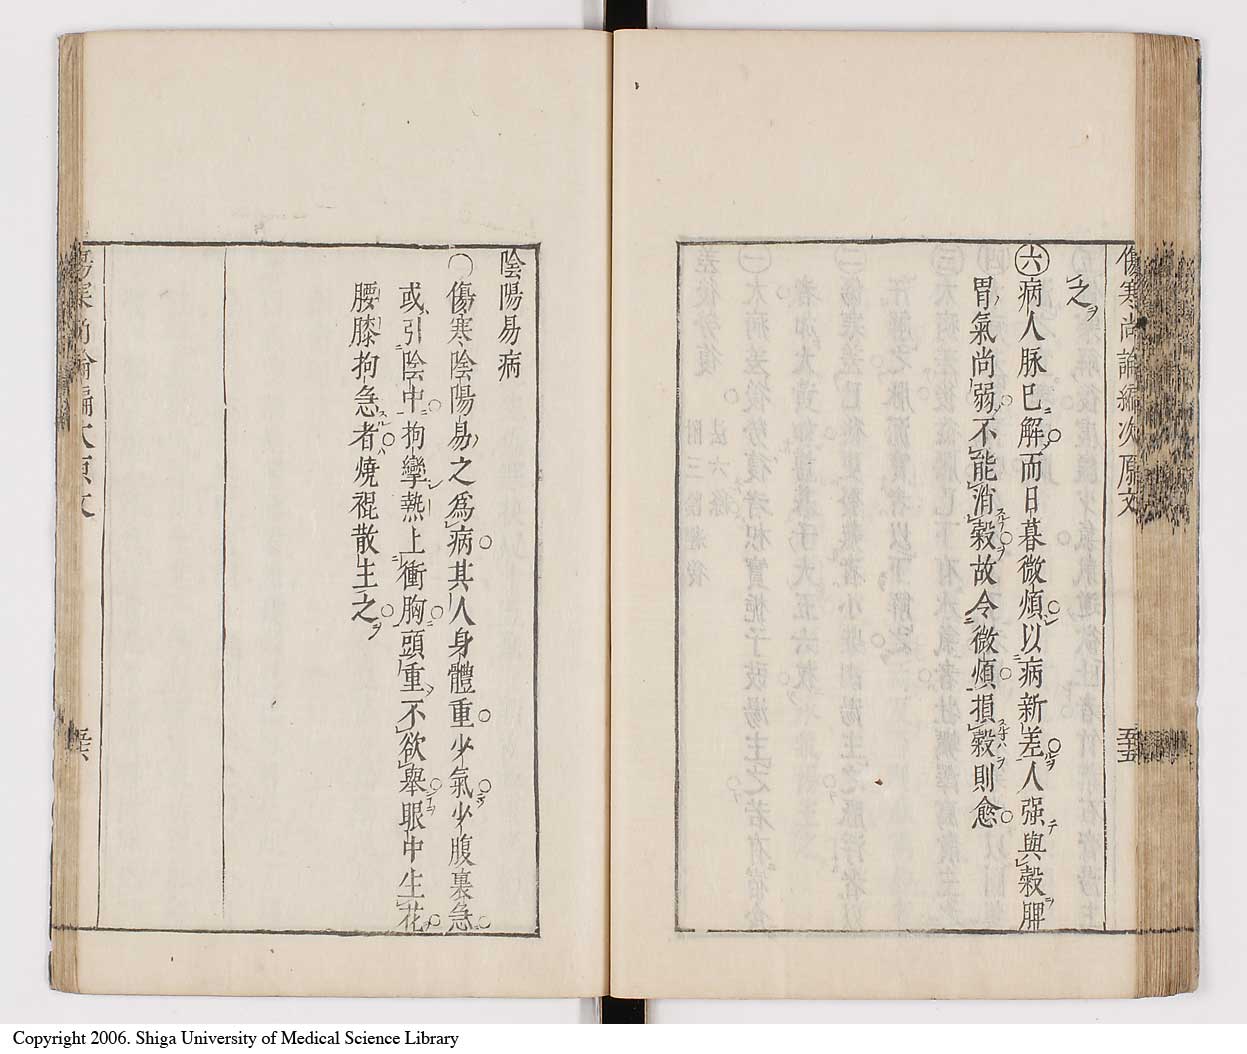 傷寒尚論編次原文
之ヲ
㊅病人脉已解而日暮微煩以病新差人强與穀脾
胃氣尚弱不能消穀故令微煩損穀則愈
五十五
陰陽易病
〇傷寒陰陽易之爲病其人身體重少氣少腹裏急
或引陰中拘攣熱上衝胸頭重不欲舉眼中生花
腰膝拘急者燒裩散主之
Copyright 2006. Shiga University of Medical Science Library